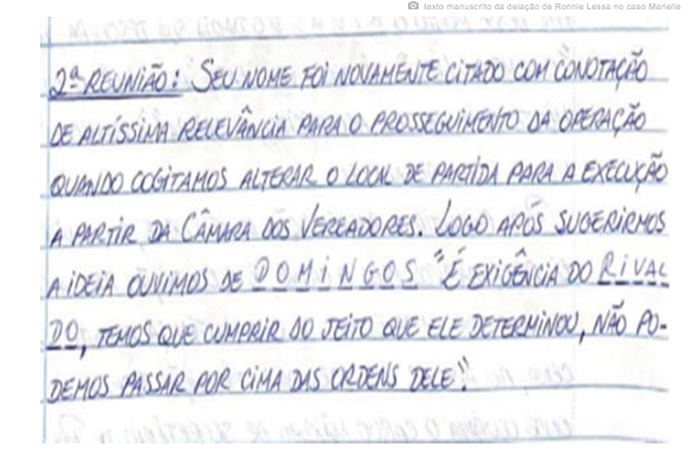 texto manuscrito da delação de Ronnie Lessa no caso Marielle
2ª REUNIÃO: SEU NOME FOI NOVAMENTE CITADO COM CONOTAÇÃO
DE ALTÍSSIMA RELEVÂNCIA PARA O PROSSEGUIMENTO DA OPERAÇÃO
QUANDO COGITAMOS ALTERAR O LOCAL DE PARTIDA PARA A EXECUÇÃO
A PARTIR DA CÂMARA DOS VEREADORES. LOGO APÓS SUGERIRMOS
A IDEIA OUVIMOS DE DOMINGOS "É EXIGÊNCIA DO RIVAL
DO, TEMOS QUE CUMPRIR DO JEITO QUE ELE DETERMINOU, NÃO PO-
DEMOS PASSAR POR CIMA DAS ORDENS DELE".